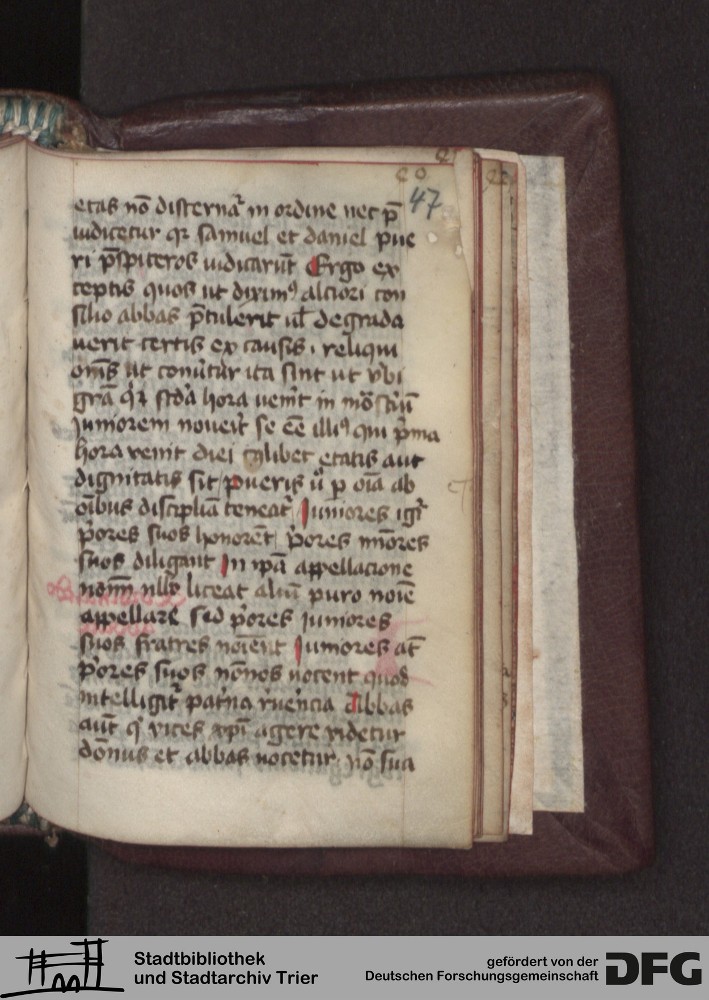 47
etas nō discernat᷑ in ordine nec p̄
iudicetur qꝛ samuel et daniel pue
ri p̄sbiteros iudicarūt Ergo ex
ceptis quos ut diximꝰ alciori con
silio abbas p̄tulerit ul̄ degrada
uerit certis ex causis reliqui
om̄s ut conūtūr ita sint ut v̓bi
grā qꝛ scd̓a hora ueīt in mōst̓iū
Juniorem noueīt se eē illiꝰ qui p̓ma
hora venit diei cuiꝰlibet etatis aut
dignitatis sit pueris u̓ p oīa ab
oībus discipliā teneat᷑ Juniores igr̄
p̓ores suos honorēt p̓ores mīores
suos diligant In ip̄a appellacione
noīm nlli liceat aliū puro noīe
appellare sed p̓ores Juniores
suos fratres noīent Juniores at̄
p̓ores suos nōnos uocent quod
intelligit᷑ pat̓na r̓uen̓cia Abbas
aūt q̓ vices xp̄i agere videtur
dōnus et abbas uocetur nō sua
Stadtbibliothek
und Stadtarchiv Trier
gefördert von der
Deutschen Forschungsgemeinschaft
DFG